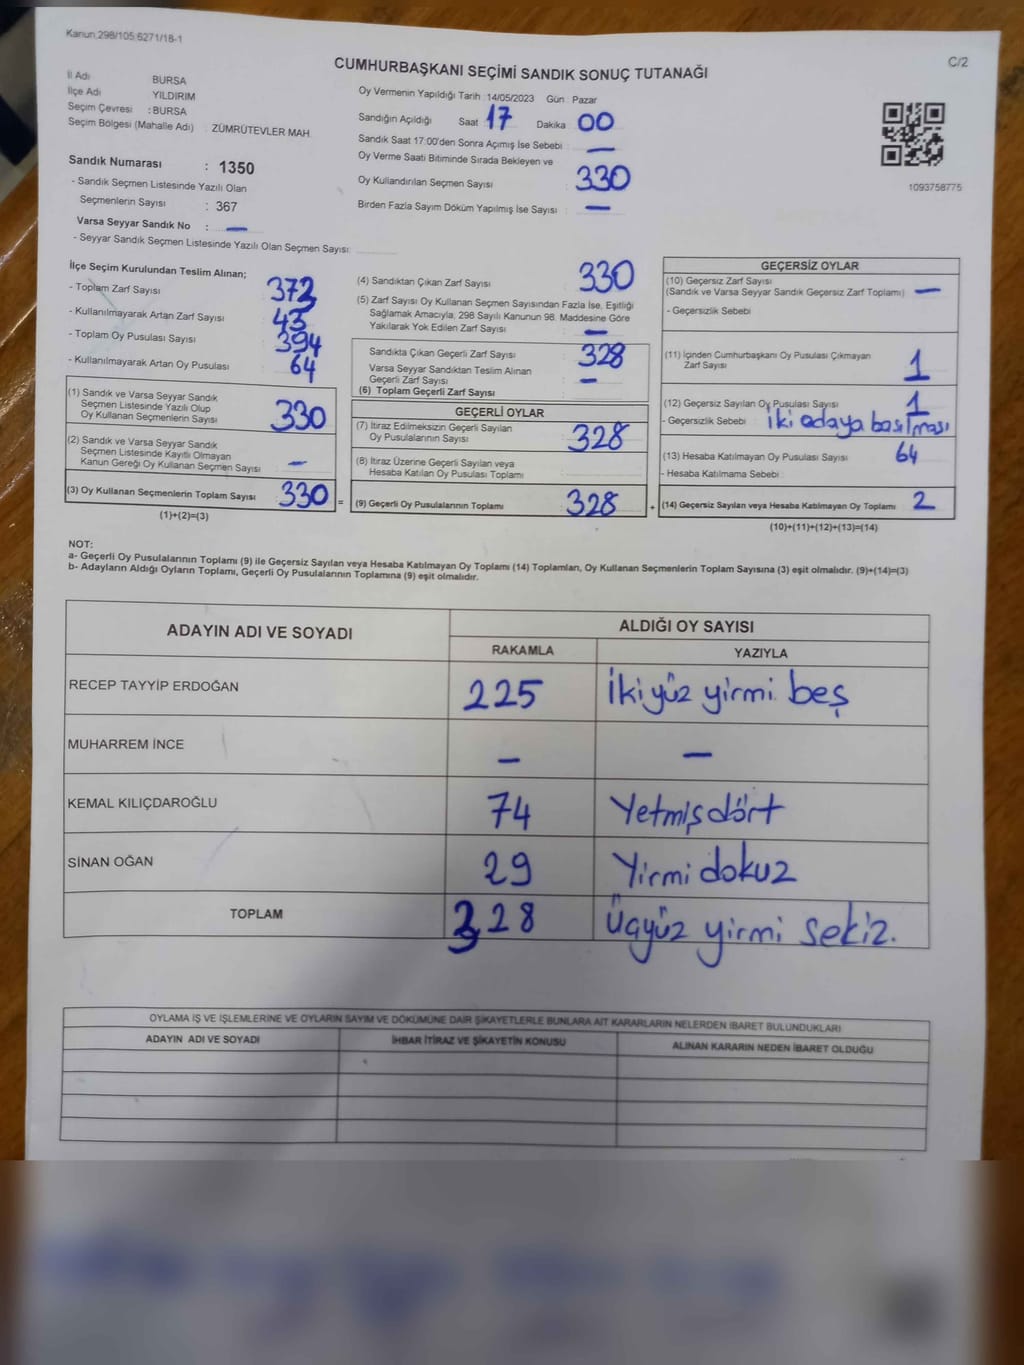 Kanun.298/105.6271/18-1
C/2
CUMHURBAŞKANI SEÇİMİ SANDIK SONUÇ TUTANAĞI
İl Adı BURSA
İlçe Adı YILDIRIM
Seçim Çevresi : BURSA
Seçim Bölgesi (Mahalle Adı) : ZÜMRÜTEVLER MAH.
Sandık Numarası : 1350
- Sandık Seçmen Listesinde Yazılı Olan
Seçmenlerin Sayısı : 367
Varsa Seyyar Sandık No : —
- Seyyar Sandık Seçmen Listesinde Yazılı Olan Seçmen Sayısı:
Oy Vermenin Yapıldığı Tarih : 14/05/2023 Gün : Pazar
Sandığın Açıldığı Saat 17 Dakika 00
Sandık Saat 17:00'den Sonra Açımış İse Sebebi : —
Oy Verme Saati Bitiminde Sırada Bekleyen ve
Oy Kullandırılan Seçmen Sayısı : 330
Birden Fazla Sayım Döküm Yapılmış İse Sayısı : —
1093758775
İlçe Seçim Kurulundan Teslim Alınan;
- Toplam Zarf Sayısı 373
- Kullanılmayarak Artan Zarf Sayısı 43
- Toplam Oy Pusulası Sayısı 394
- Kullanılmayarak Artan Oy Pusulası 64
(1) Sandık ve Varsa Seyyar Sandık
Seçmen Listesinde Yazılı Olup
Oy Kullanan Seçmenlerin Sayısı 330
(2) Sandık ve Varsa Seyyar Sandık
Seçmen Listesinde Kayıtlı Olmayan
Kanun Gereği Oy Kullanan Seçmen Sayısı —
(3) Oy Kullanan Seçmenlerin Toplam Sayısı 330 =
(1)+(2)=(3)
(4) Sandıktan Çıkan Zarf Sayısı 330
(5) Zarf Sayısı Oy Kullanan Seçmen Sayısından Fazla İse, Eşitliği
Sağlamak Amacıyla, 298 Sayılı Kanunun 98. Maddesine Göre
Yakılarak Yok Edilen Zarf Sayısı : —
Sandıkta Çıkan Geçerli Zarf Sayısı 328
Varsa Seyyar Sandıktan Teslim Alınan
Geçerli Zarf Sayısı : —
(6) Toplam Geçerli Zarf Sayısı
GEÇERLİ OYLAR
(7) İtiraz Edilmeksizin Geçerli Sayılan
Oy Pusulalarının Sayısı 328
(8) İtiraz Üzerine Geçerli Sayılan veya
Hesaba Katılan Oy Pusulası Toplamı
(9) Geçerli Oy Pusulalarının Toplamı 328 +
GEÇERSİZ OYLAR
(10) Geçersiz Zarf Sayısı
(Sandık ve Varsa Seyyar Sandık Geçersiz Zarf Toplamı) —
- Geçersizlik Sebebi
(11) İçinden Cumhurbaşkanı Oy Pusulası Çıkmayan
Zarf Sayısı 1
(12) Geçersiz Sayılan Oy Pusulası Sayısı 1
- Geçersizlik Sebebi : iki adaya basılması
(13) Hesaba Katılmayan Oy Pusulası Sayısı 64
- Hesaba Katılmama Sebebi
(14) Geçersiz Sayılan veya Hesaba Katılmayan Oy Toplamı 2
(10)+(11)+(12)+(13)=(14)
NOT:
a- Geçerli Oy Pusulalarının Toplamı (9) ile Geçersiz Sayılan veya Hesaba Katılmayan Oy Toplamı (14) Toplamları, Oy Kullanan Seçmenlerin Toplam Sayısına (3) eşit olmalıdır. (9)+(14)=(3)
b- Adayların Aldığı Oyların Toplamı, Geçerli Oy Pusulalarının Toplamına (9) eşit olmalıdır.
ADAYIN ADI VE SOYADI ALDIĞI OY SAYISI
RAKAMLA YAZIYLA
RECEP TAYYİP ERDOĞAN 225 İkiyüz yirmi beş
MUHARREM İNCE — —
KEMAL KILIÇDAROĞLU 74 Yetmişdört
SİNAN OĞAN 29 Yirmi dokuz
TOPLAM 328 Üçyüz yirmi sekiz.
OYLAMA İŞ VE İŞLEMLERİNE VE OYLARIN SAYIM VE DÖKÜMÜNE DAİR ŞİKAYETLERLE BUNLARA AİT KARARLARIN NELERDEN İBARET BULUNDUKLARI
ADAYIN ADI VE SOYADI İHBAR İTİRAZ VE ŞİKAYETİN KONUSU ALINAN KARARIN NEDEN İBARET OLDUĞU